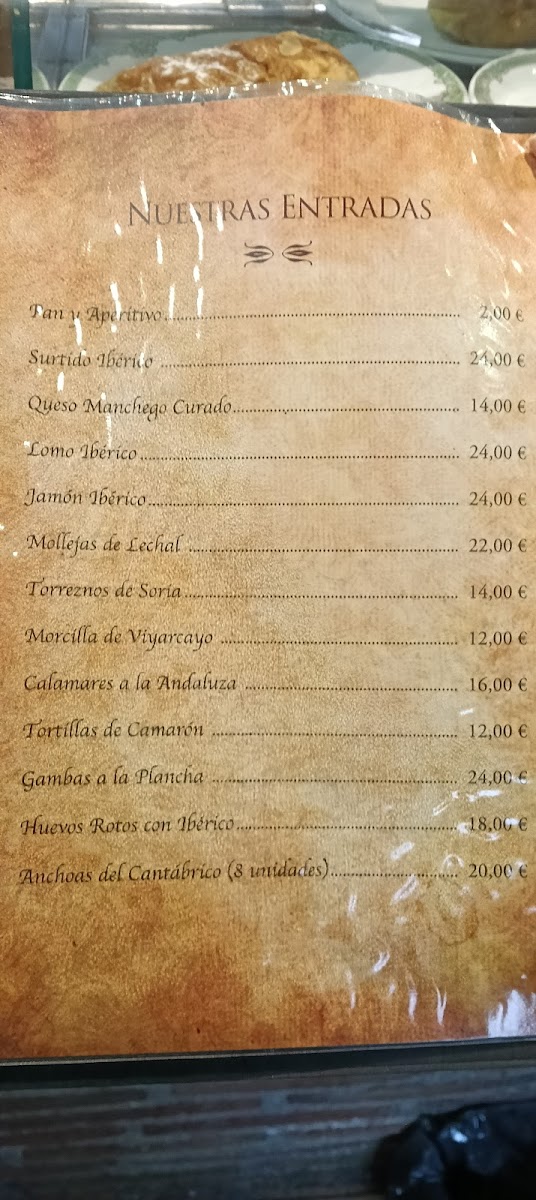 NUESTRAS ENTRADAS
Pan y Aperitivo 2,00 €
Surtido Ibérico 24,00 €
Queso Manchego Curado 14,00 €
Lomo Ibérico 24,00 €
Jamón Ibérico 24,00 €
Mollejas de Lechal 22,00 €
Torreznos de Soria 14,00 €
Morcilla de Viyarcayo 12,00 €
Calamares a la Andaluza 16,00 €
Tortillas de Camarón 12,00 €
Gambas a la Plancha 24,00 €
Huevos Rotos con Ibérico 18,00 €
Anchoas del Cantábrico (8 unidades) 20,00 €